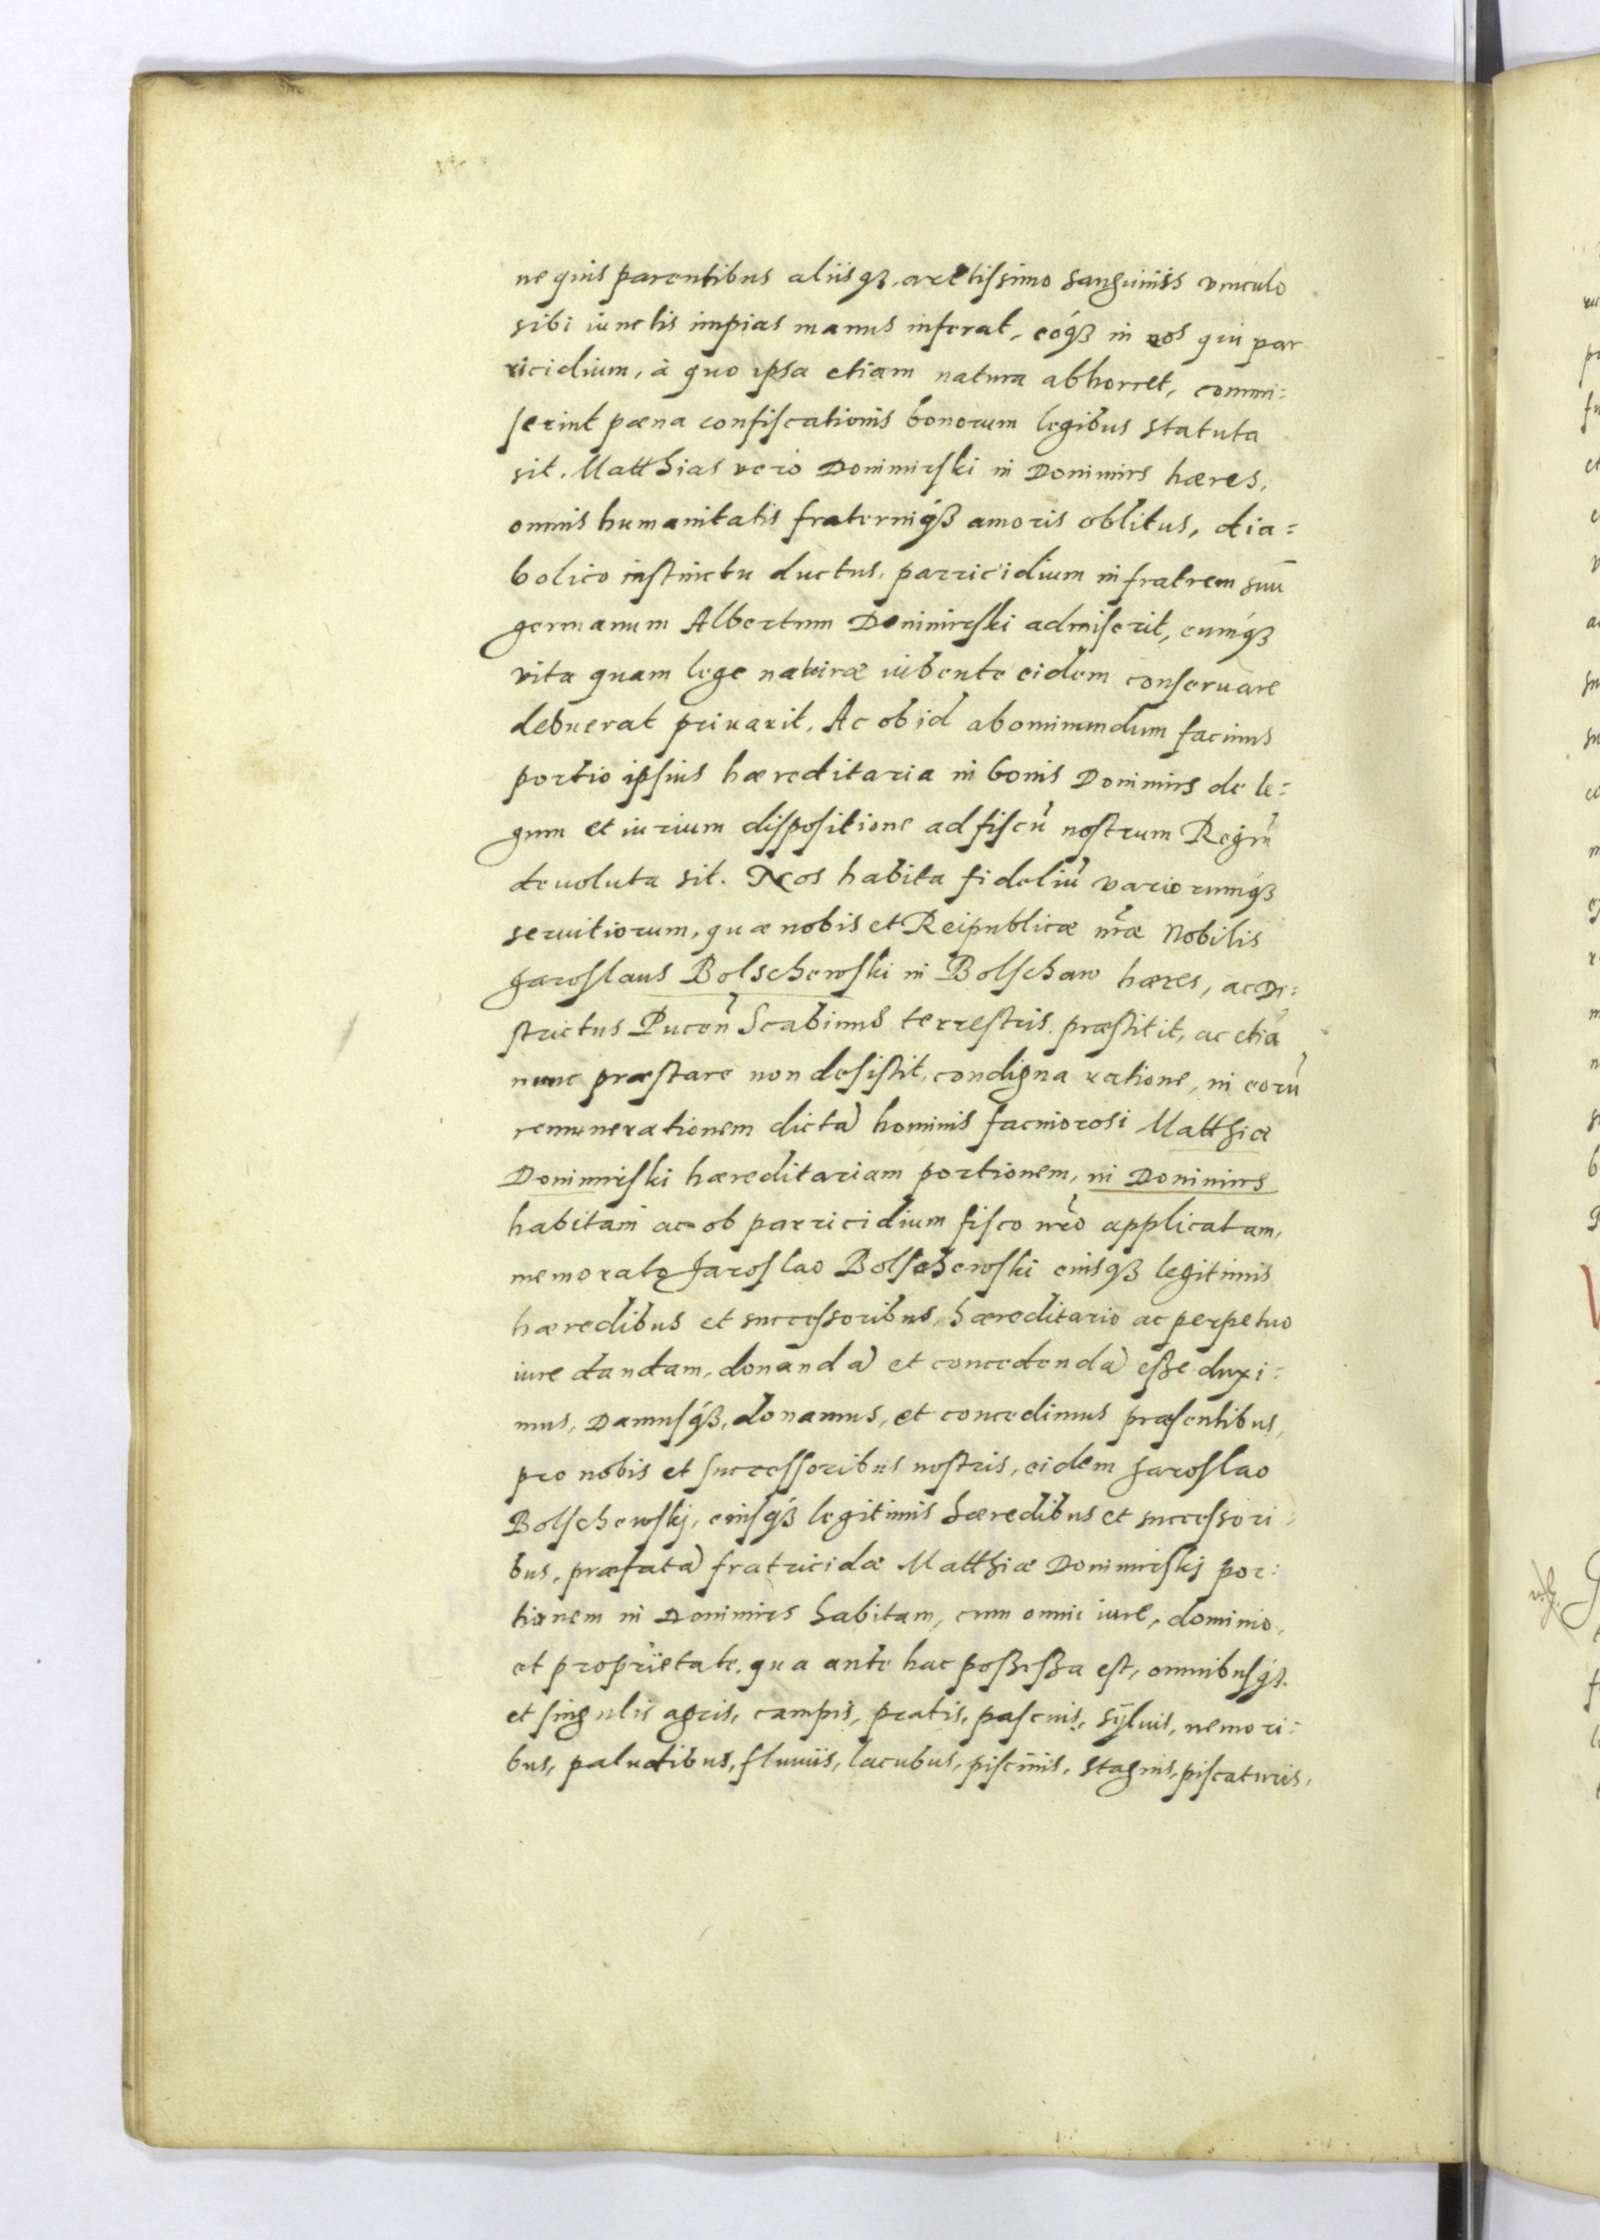 ne quis parentibus aliisq3, arctissimo sanguinis vinculo
sibi iunctis impias manus inferat, eoq3 in eos qui par
ricidium, à quo ipsa etiam natura abhorret, commi:
serint pæna confiscationis bonorum legibus statuta
sit. Matthias vero Donimirski in Donimirs hæres,
omnis humanitatis fraterniq3 amoris oblitus, dia:
bolico instinctu ductus, parricidium in fratrem suū
germanum Albertum Donimirski admiserit, eumq3
vita quam lege naturæ iubente eidem conseruare
debuerat priuarit. Ac ob id abominandum facinus
portio ipsius hæreditaria in bonis Donimirs de le:
gum et iurium dispositione ad fiscū nostrum Regiū
deuoluta sit. Nos habita fideliū variorumq3
seruitiorum, quæ nobis et Reipublicæ nr̃æ Nobilis
Jaroslaus Bolschewski in Bolschaw hæres, ac Di:
strictus Pucen̄ Scabinus terrestris præstitit, ac etiā
nunc præstare non desistit, condigna ratione, in eorū
remunerationem dictā hominis facinorosi Matthiæ
Donimirski hæreditariam portionem, in Donimirs
habitam ac ob parricidium fisco nr̃o applicatam,
memorato Jaroslao Bolschewski eiusq3 legitimis
hæredibus et successoribus, hæreditario ac perpetuo
iure dandam, donandā et concedendā esse duxi:
mus, Damusq3, donamus, et concedimus præsentibus,
pro nobis et successoribus nostris, eidem Jaroslao
Bolschewskj, eiusq3 legitimis hæredibus et successori:
bus, præfatā fratricidæ Matthiæ Donimirskj por:
tionem in Donimirs habitam, cum omni iure, dominio,
et proprietate, qua ante hac possessa est, omnibusq3
et singulis agris, campis, pratis, pascuis, sÿluis, nemori:
bus, paludibus, fluuiis, lacubus, piscinis, stagnis, piscaturis,